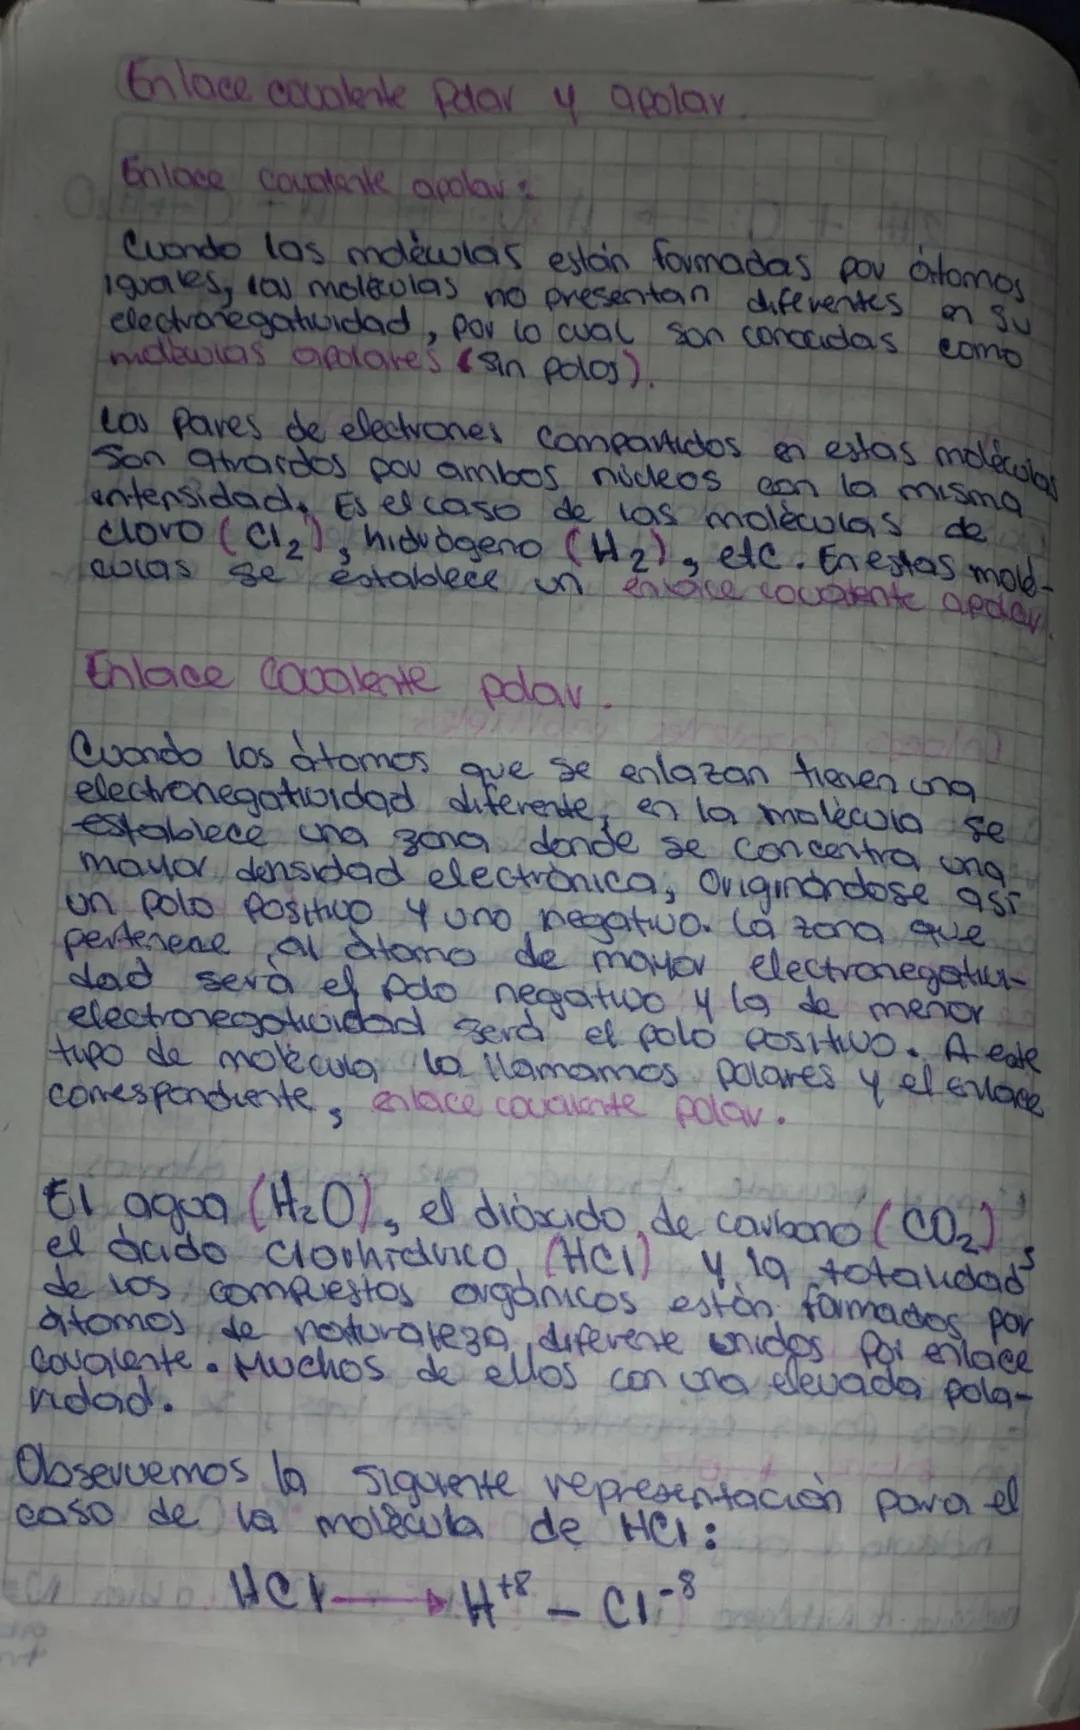 Enlace covalente Polar y apolar.
Enlace covalente apolar:
Cuando las moléculas están formadas por átomos
iguales, las moléculas no presentan diferentes en su
electronegatividad, por lo cual son conocidas como
moléculas apolares (sin polos).
Los pares de electrones compartidos en estas moléculas
son atraídos por ambos núcleos con la misma
intensidad. Es el caso de las moléculas de
cloro (Cl₂), hidrógeno (H₂), etc. En estas molé-
culas se establece un enlace covalente apolar.
Enlace Covalente polar.
Cuando los átomos que se enlazan tienen una
electronegatividad diferente, en la molécula se
establece una zona donde se concentra una
mayor densidad electrónica, Originándose así
un polo positivo y uno negativo. La zona que
pertenece al átomo de mayor electronegativi-
dad será el polo negativo y la de menor
electronegatividad será el polo positivo. A este
tipo de molécula la llamamos polares y el enlace
correspondiente, enlace covalente polar.
El agua (H₂O), el dióxido de carbono (CO₂),
el ácido clorhídrico (HCl) y la totalidad
de los compuestos orgánicos están formados por
átomos de naturaleza diferente unidos por enlace
covalente. Muchos de ellos con una elevada pola-
ridad.
Observemos la siguiente representación para el
caso de la molécula de HCl:
HCl → H⁺⁸ – Cl⁻⁸